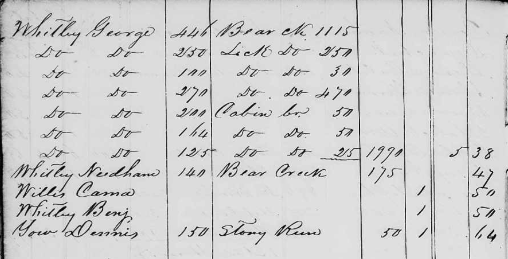 Whitley George 446 Bear ck 1115
Do Do 250 Lick Do 250
Do Do 100 Do Do 30
Do Do 270 Do Do 470
Do Do 200 Cabin br. 50
Do Do 164 Do Do. 50
Do Do 125 Do Do 25 1990 5 38
Whitley Needham 140 Bear Creek 175 47
Willis Cama 1 50
Whitley Benj 1 50
Yow Dennis 150 Stony Run 50 1 64